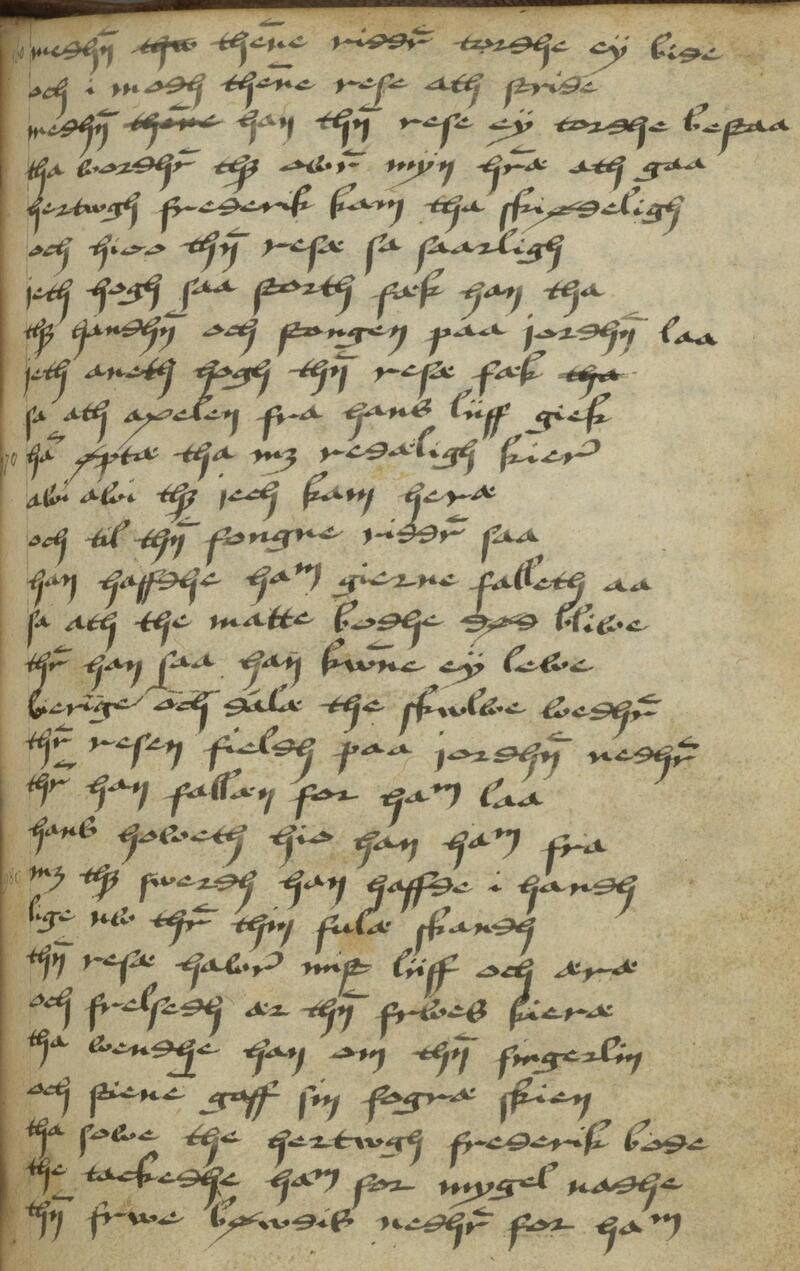 medhn̄ thw thēne riddr̄ tordhe ey bide
och i modh thēne rese ath stride
medhn̄ thēne han thn̄ rese ey tordhe bestaa
tha wordhr̄ thꝫ owr̄ myn hr̄æ ath gaa
hertwgh frederik kam tha skyndeligh
och hioo thn̄ resæ sa saarligh
jeth hogh saa storth fæk han tha
thꝫ handhn̄ och stongen paa jordhn̄ laa
jeth aneth hogh thn̄ resæ fæk tha
sa ath axelen fra hans liiff giek
hā øptæ tha mꝫ redæligh kier̄
awi awi thꝫ jech kam heræ
och til thn̄ fongne riddr̄ saa
han haffdhe haᵐ gierne falleth aa
sa ath the matte bodhe død bliwe
thr̄ han saa han kwn̄e ey lewe
berige och dalæ the skwlwe wedhr̄
thr̄ resen fieldh paa jordhn̄ nedhr̄
thr̄ han fallæn for haᵐ laa
hans howeth hio han haᵐ fra
mꝫ thꝫ swerdh han haffde i handh
lige nw thr̄ thin fulæ skandh
thn̄ resæ hawr̄ mist liiff och æræ
och frelsedh ær thn̄ frwes kieræ
tha wendhe han om thn̄ fingerlin
och stiene gaff sin fogræ skien
tha sowe the hertwgh frederik bode
the tackedhe haᵐ for mygel nadhe
thn̄ frwe bøwdis nedhr̄ for haᵐ